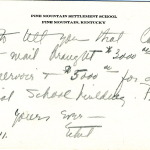 PINE MOUNTAIN SETTLEMENT SCHOOL
PINE MOUNTAIN, KENTUCKY
to tell you that
mail brought $3000
$5000 for a
School building.
yours ever